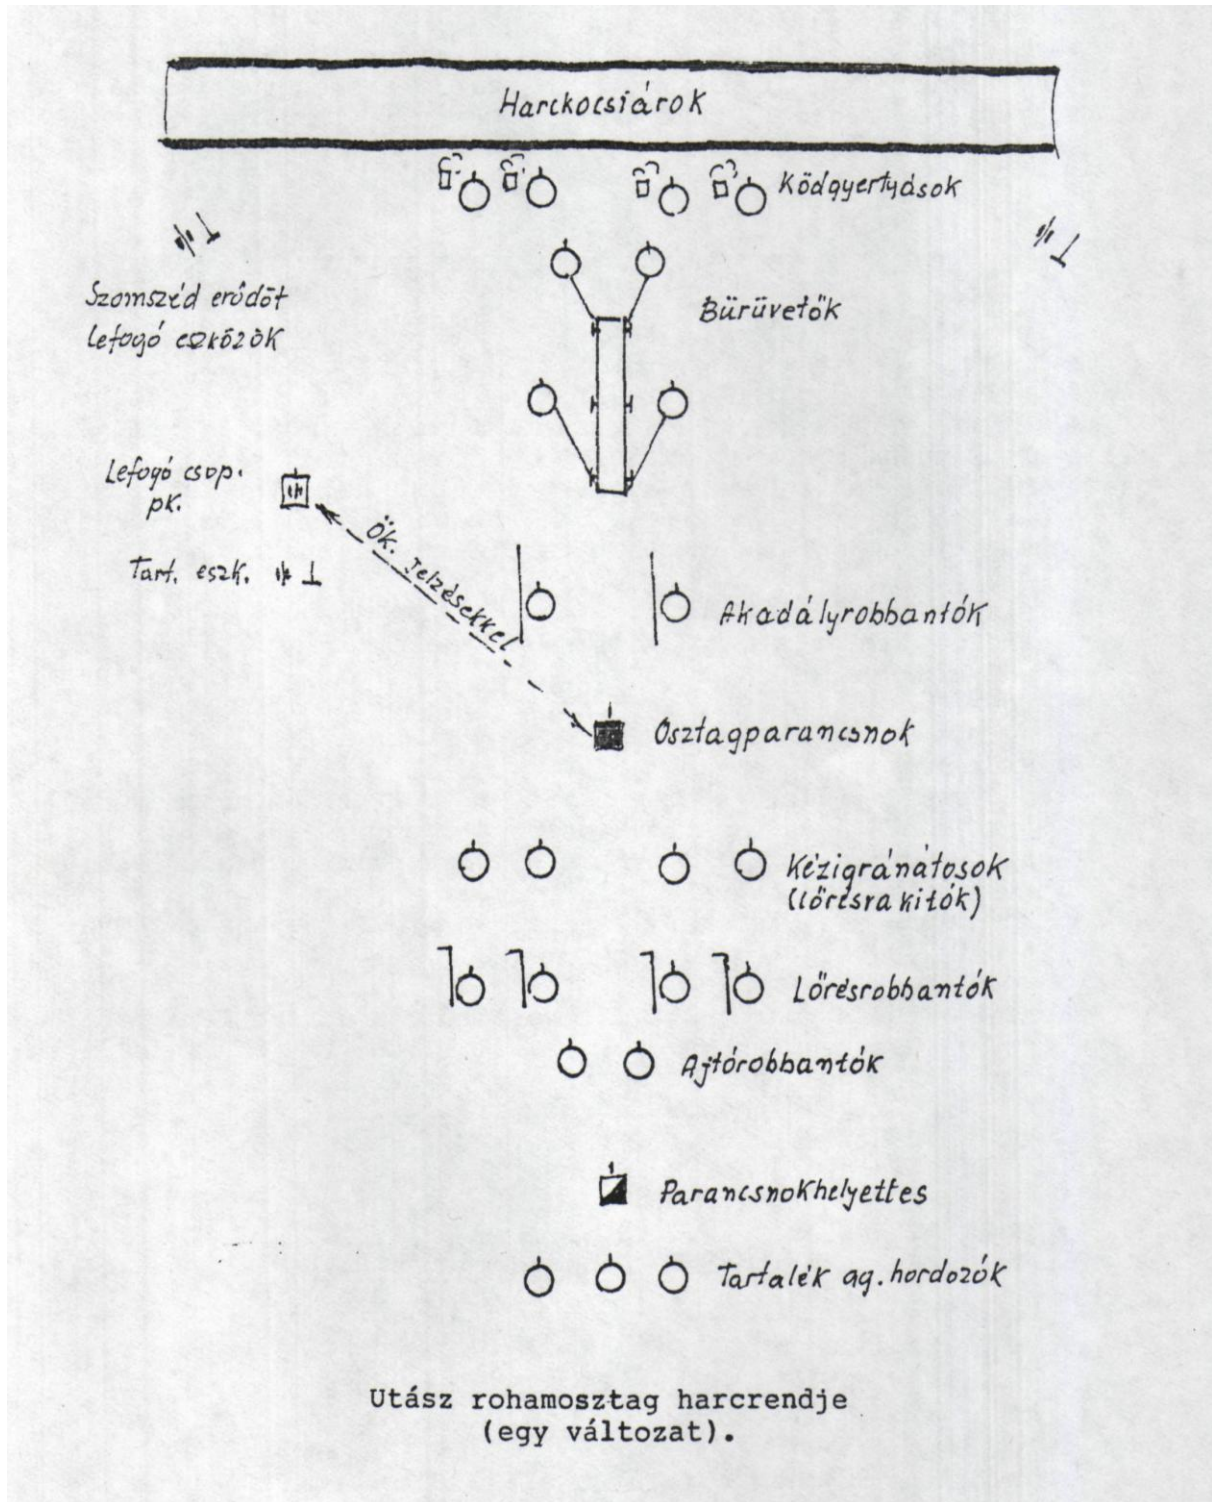 Harckocsiárok
Ködgyertyások
Szomszéd erődöt
lefogó eszközök
Bürüvetők
Lefogó csop.
pk.
Ök. jelzésekkel
Tart. eszk.
Akadályrobbantók
Osztagparancsnok
Kézigránátosok
(lőrésrakitók)
Lőrésrobbantók
Ajtórobbantók
Parancsnokhelyettes
Tartalék ag. hordozók
Utász rohamosztag harcrendje
(egy változat).